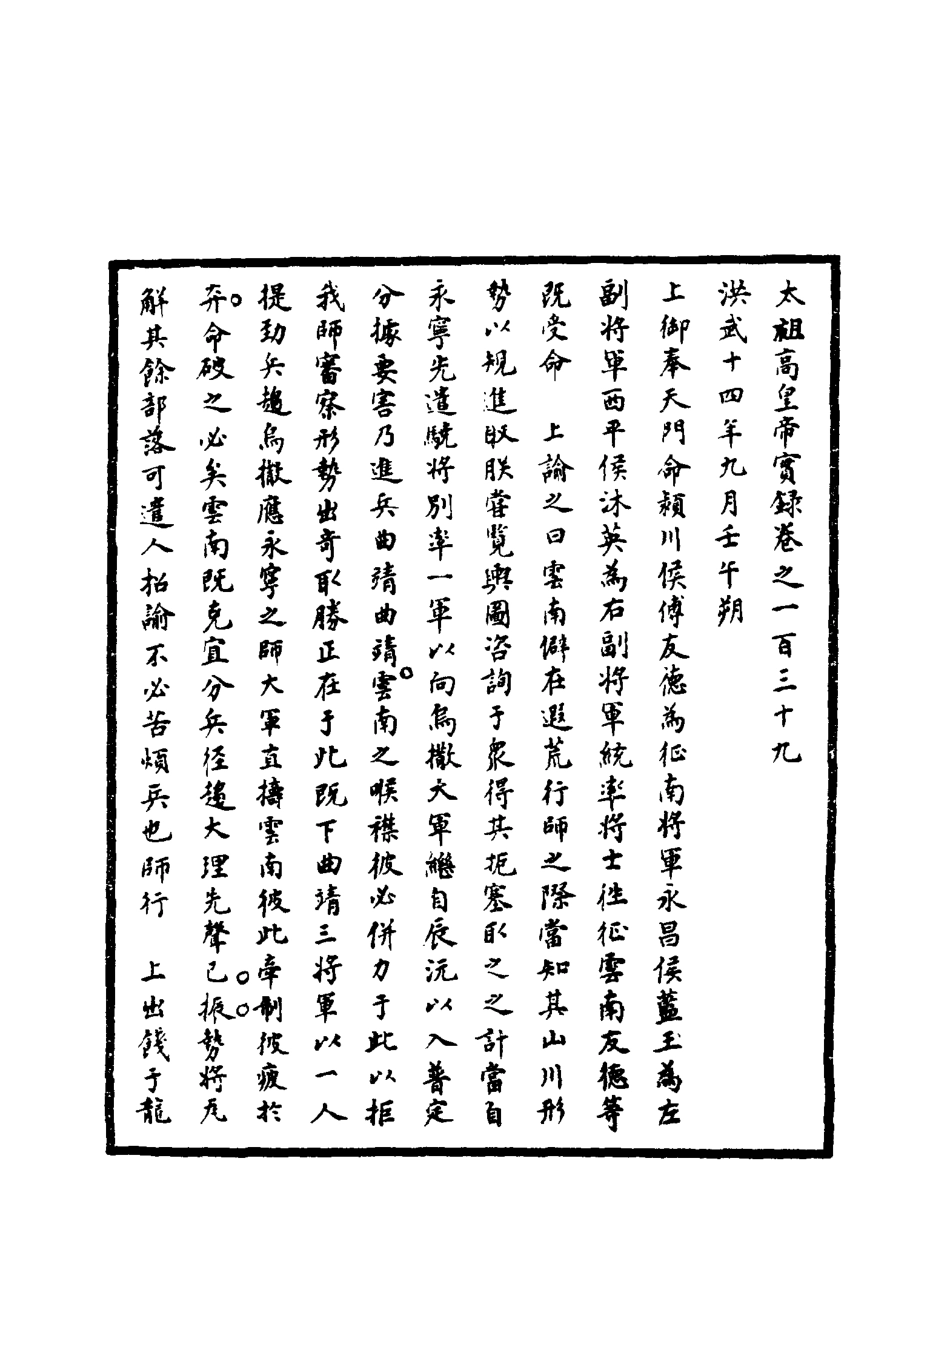 太祖高皇帝實録卷之一百三十九
洪武十四年九月壬午朔
上御奉天門命潁川侯傅友德為征南將軍永昌侯藍玉為左
副將軍西平侯沐英為右副將軍統率將士徃征雲南友德等
既受命　上諭之曰雲南僻在遐荒行師之際當知其山川形
勢以規進取朕嘗覽輿圖咨詢于衆得其扼塞取之之計當自
永寧先遣驍將別率一軍以向烏撒大軍繼自辰沅以入普定
分據要害乃進兵曲靖曲靖雲南之喉襟彼必併力于此以拒
我師審察形勢出奇取勝正在于此既下曲靖三將軍以一人
提勁兵趨烏撒應永寧之師大軍直擣雲南彼此牽制彼疲於
奔命破之必矣雲南既克宜分兵径趨大理先聲已振勢將瓦
解其餘部落可遣人招諭不必苦煩兵也師行　上出餞于龍